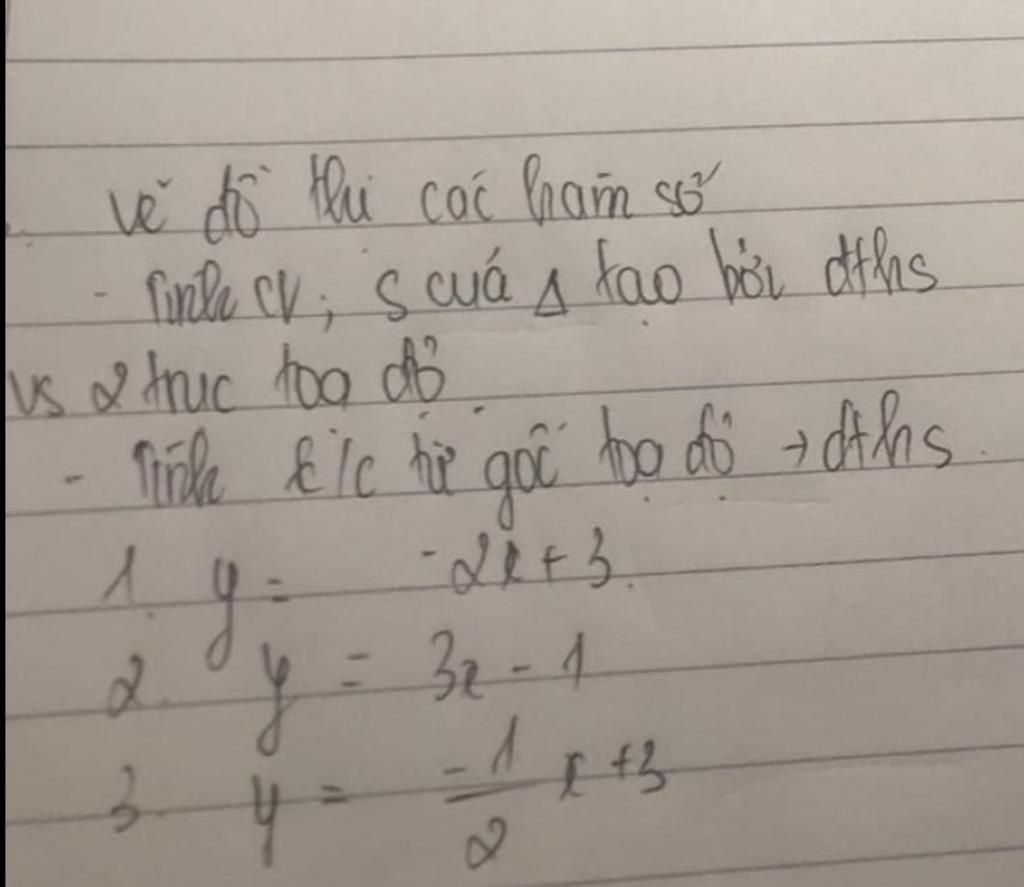 Vẽ đồ thị các hàm số
- Tính CV; S của Δ tạo bởi đths
vs 2 trục toạ độ
- Tính k/c từ gốc toạ độ → đths.
1. y = -2x + 3.
2. y = 3x - 1
3 y = \frac{-1}{2} x + 3